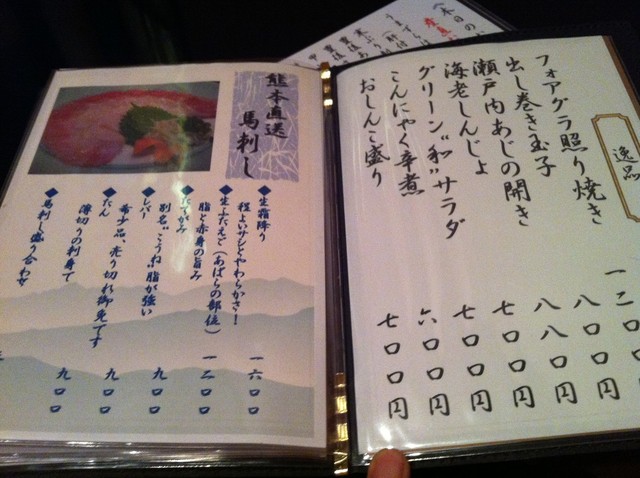 逸品
フォアグラ照り焼き 一二〇〇円
出し巻き玉子 八〇〇円
瀬戸内あじの開き 八八〇円
海老しんじょ 七〇〇円
グリーン"和"サラダ 七〇〇円
こんにゃく辛煮 六〇〇円
おしんこ盛り 七〇〇円
熊本直送
馬刺し
◆生霜降り
程よいサシとやわらかさ! 一六〇〇
◆生ふたえご(あばらの部位)
脂と赤身の旨み 一二〇〇
◆たてがみ
別名"こうね"脂が強い 九〇〇
◆レバー
希少品、売り切れ御免です 九〇〇
◆たん
薄切りの刺身で 九〇〇
◆馬刺し盛り合わせ